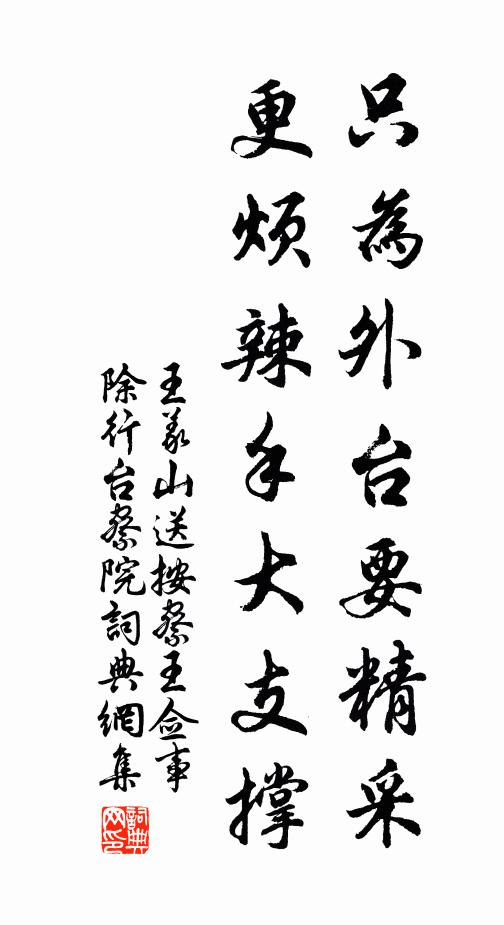 只為外台要精采
更煩辣手大支撐
王義山送按察王僉事
除行台察院詞典網集
詞典網印